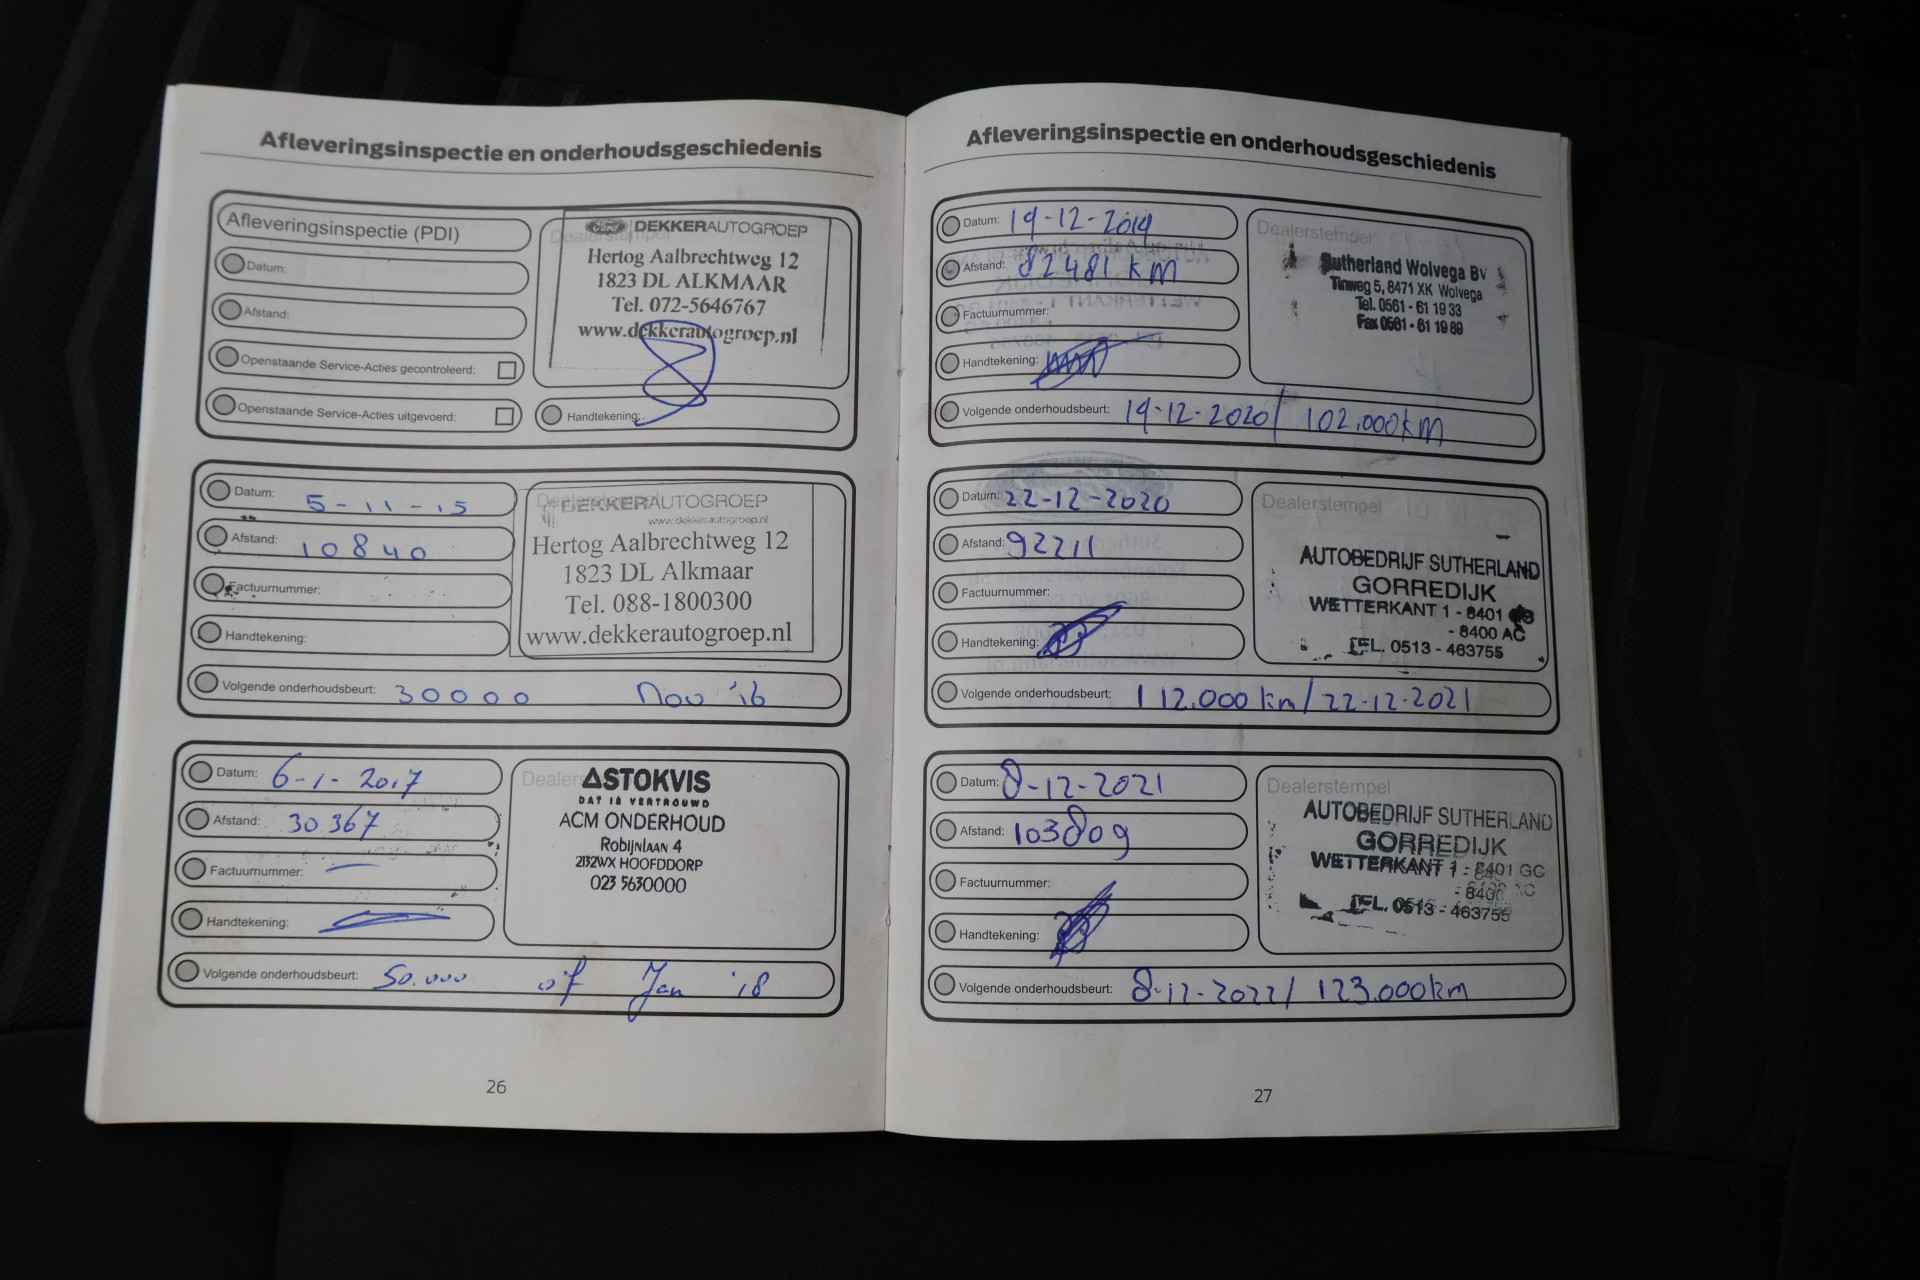 Afleveringsinspectie en onderhoudsgeschiedenis
Afleveringsinspectie (PDI)
Datum:
Afstand:
Openstaande Service-Acties gecontroleerd:
Openstaande Service-Acties uitgevoerd:
DEKKERAUTOGROEP
Hertog Aalbrechtweg 12
1823 DL ALKMAAR
Tel. 072-5646767
www.dekkerautogroep.nl
Handtekening:
Datum: 5-11-15
Afstand: 10840
Factuurnummer:
Handtekening:
DEKKERAUTOGROEP
www.dekkerautogroep.nl
Hertog Aalbrechtweg 12
1823 DL Alkmaar
Tel. 088-1800300
www.dekkerautogroep.nl
Volgende onderhoudsbeurt: 30000 Nov '16
Datum: 6-1-2017
Afstand: 30367
Factuurnummer: —
Handtekening:
STOKVIS
DAT IS VERTROUWD
ACM ONDERHOUD
Robijnlaan 4
2132WX HOOFDDORP
023 5630000
Volgende onderhoudsbeurt: 50.000 of Jan '18
26
Afleveringsinspectie en onderhoudsgeschiedenis
Datum: 19-12-2019
Afstand: 82481 KM
Factuurnummer:
Handtekening:
Dealerstempel
Sutherland Wolvega Bv
Tinweg 5, 8471 XK Wolvega
Tel. 0561 - 61 19 33
Fax 0561 - 61 19 89
Volgende onderhoudsbeurt: 19-12-2020/ 102.000KM
Datum: 22-12-2020
Afstand: 92211
Factuurnummer:
Handtekening:
Dealerstempel
AUTOBEDRIJF SUTHERLAND
GORREDIJK
WETTERKANT 1 - 8401
- 8400 AC
TEL. 0513 - 463755
Volgende onderhoudsbeurt: 112.000 km/22-12-2021
Datum: 8-12-2021
Afstand: 103809
Factuurnummer:
Handtekening:
Dealerstempel
AUTOBEDRIJF SUTHERLAND
GORREDIJK
WETTERKANT 1 - 8401 GC
- 8400 AC
TEL. 0513 - 463755
Volgende onderhoudsbeurt: 8-12-2022/ 123.000km
27